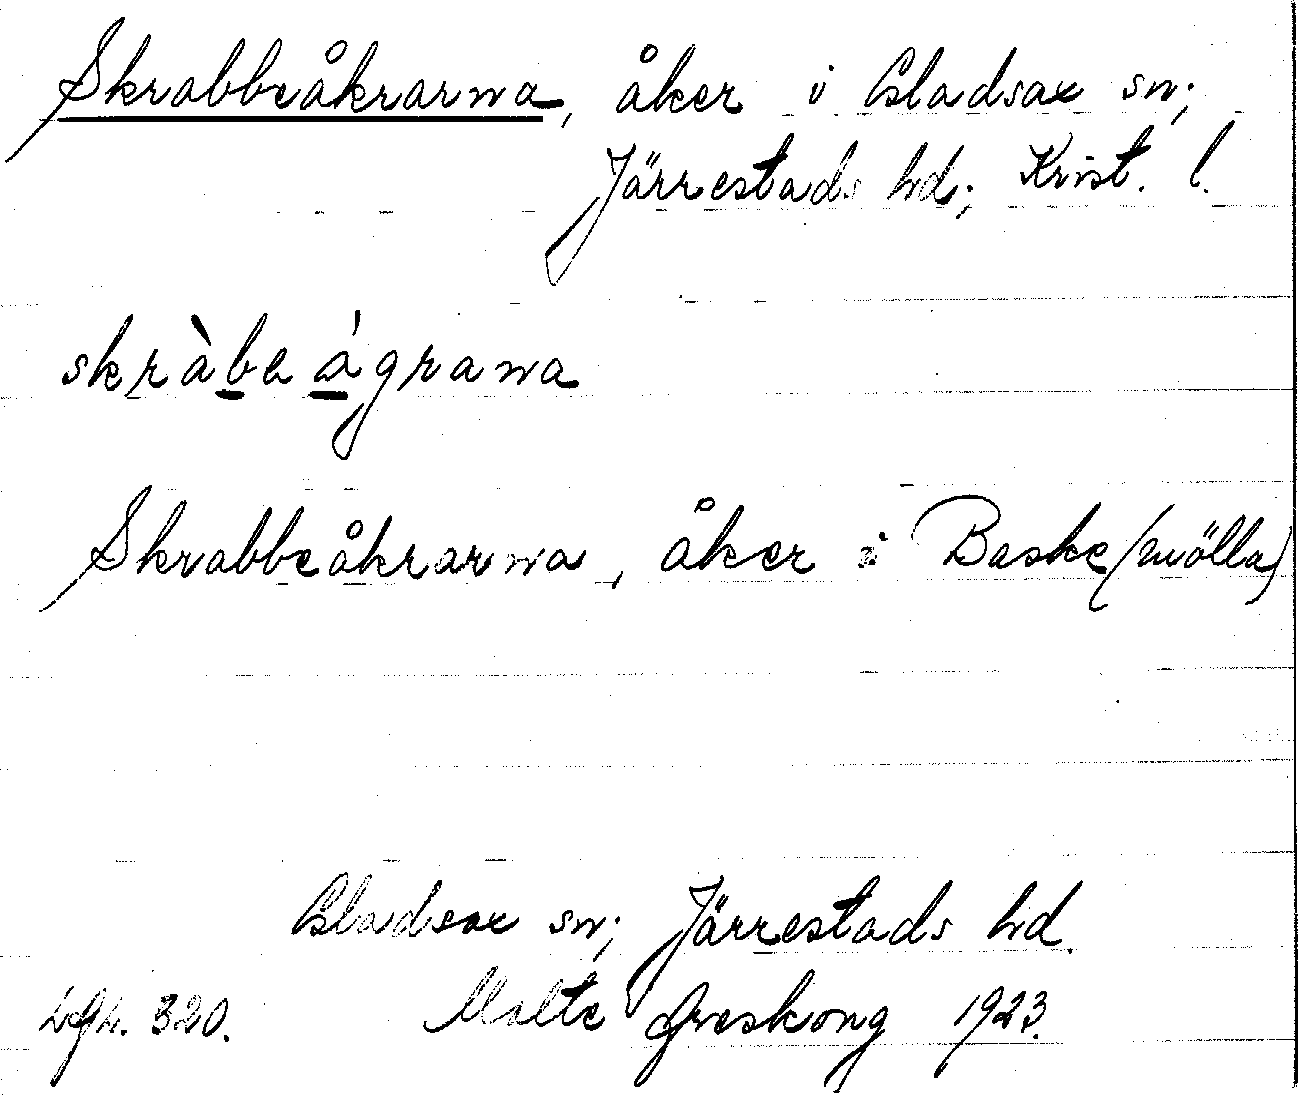 Skrabbeåkrarna, åker i Gladsax sn;
Järrestads hd; Krist. l.
skràbe ágrana
Skrabbeåkrarna, åker i Baske(mölla)
Gladsax sn; Järrestads hd.
320. Malte 1923.